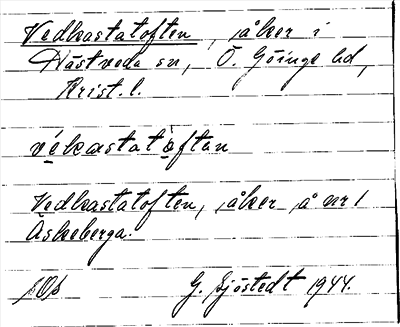 Vedkastatoften, åker i
Hästveda sn, Ö. Göinge hd,
Krist. l.
vékastatòftan
Vedkastatoften, åker å nr 1
Äskeberga.
G. Sjöstedt 1944.